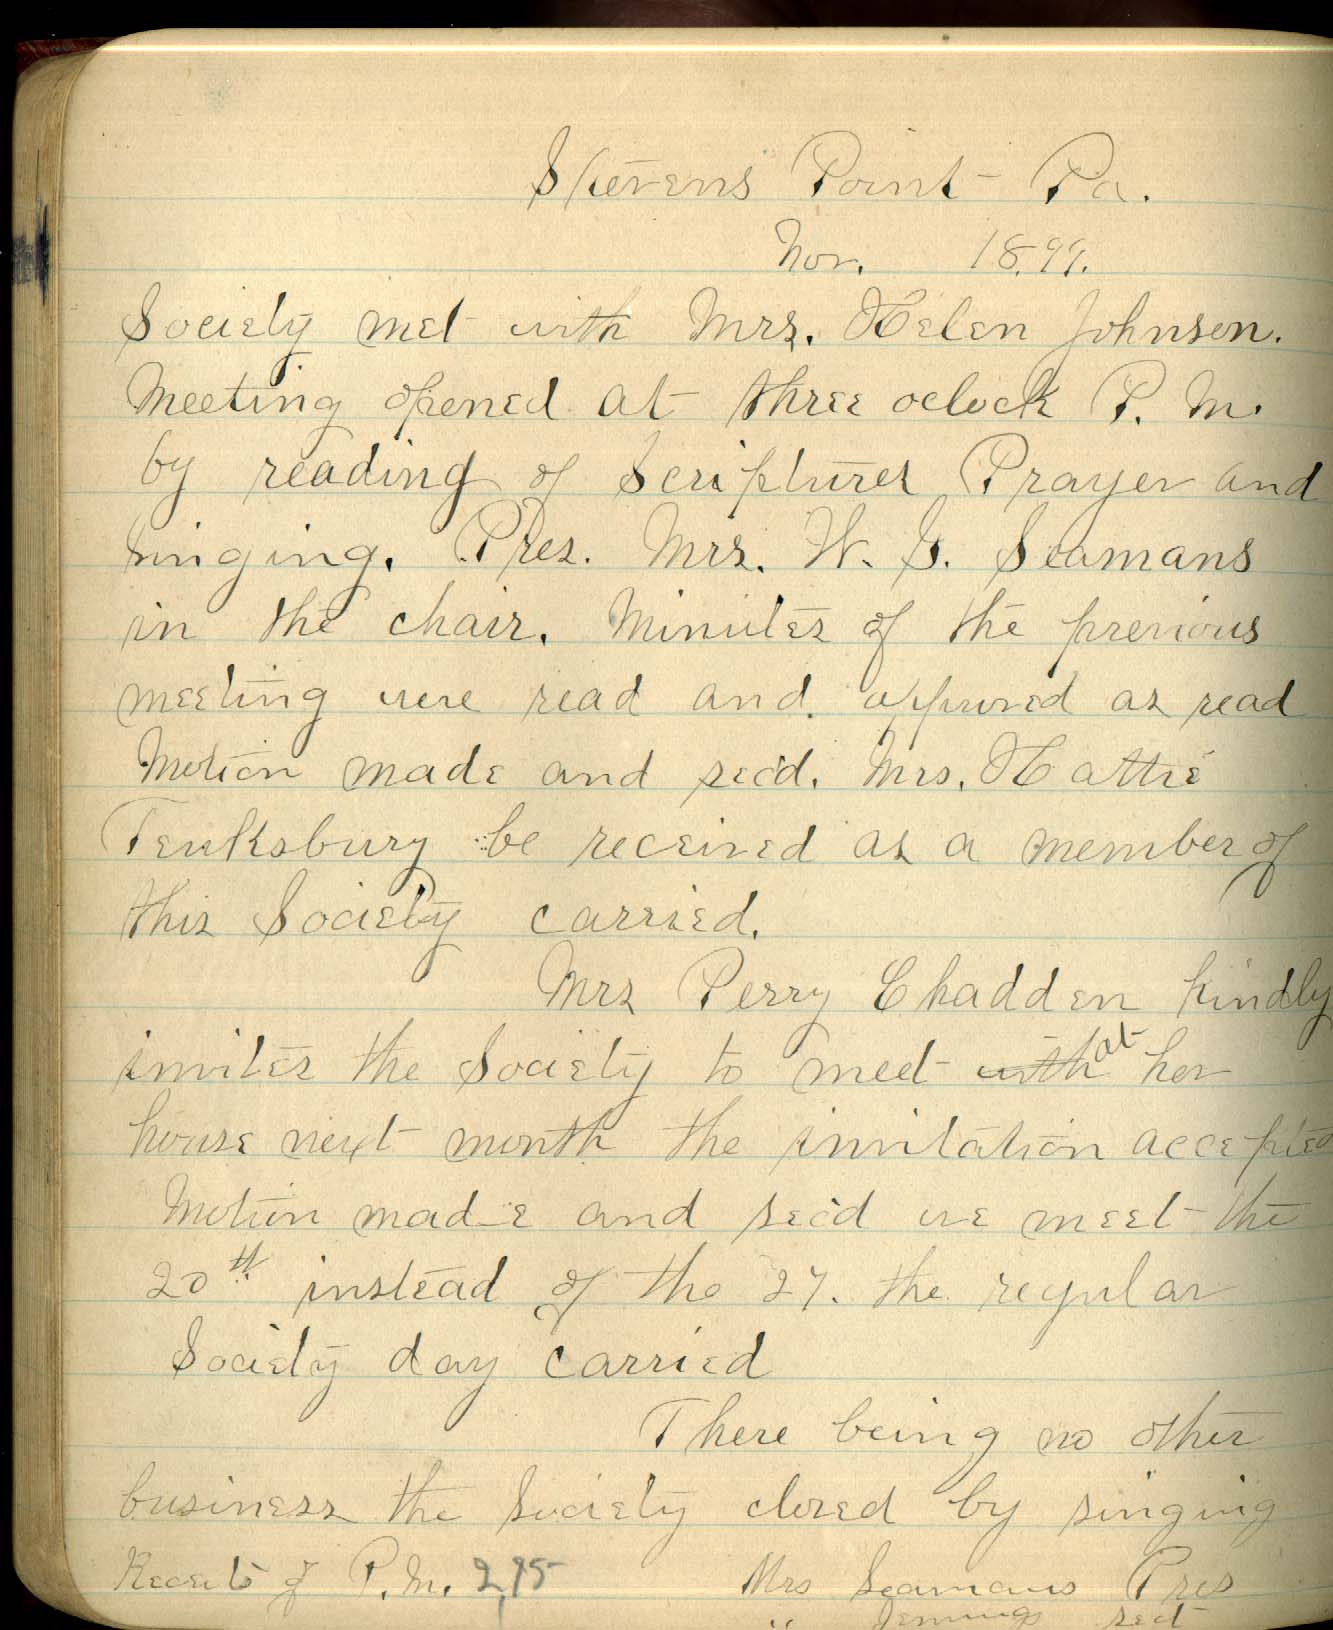 Stevens Point Pa.
Nov. 1899.
Society met with Mrs. Helen Johnson.
Meeting opened at three oclock P. M.
by reading of Scriptures Prayer and
singing. Pres. Mrs. W. G. Seamans
in the chair. Minutes of the previous
meeting were read and approved as read
Motion made and sec'd. Mrs. Hattie
Tewksbury be received as a member of
this Society carried.
Mrs Perry Chadden kindly
invites the Society to meet with at her
house next month the invitation accepted
Motion made and sec'd we meet the
20th instead of the 27. the regular
Society day carried
There being no other
business the Society closed by singing
Receits of P.M. 2,95
Mrs Seamans Pres
" Jennings sect